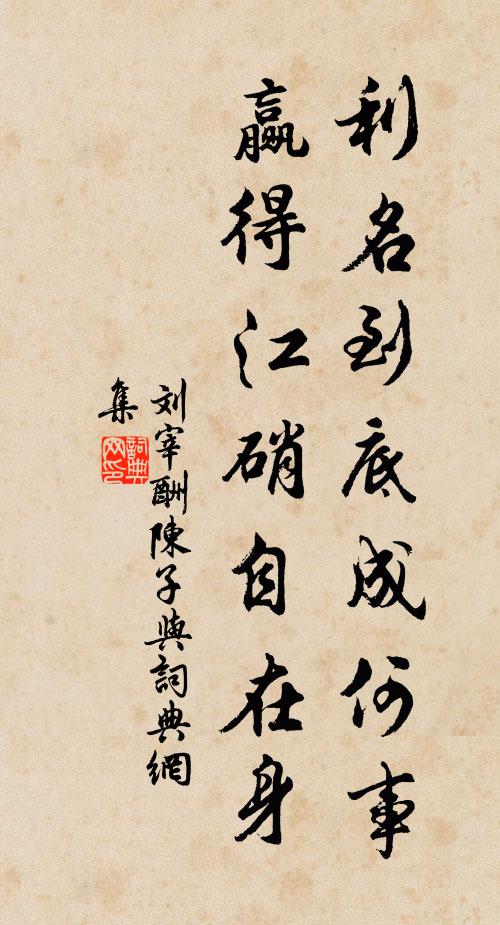 利名到底成何事
贏得江硝自在身
刘宰酬陳子與詞典網
集
詞典
网印